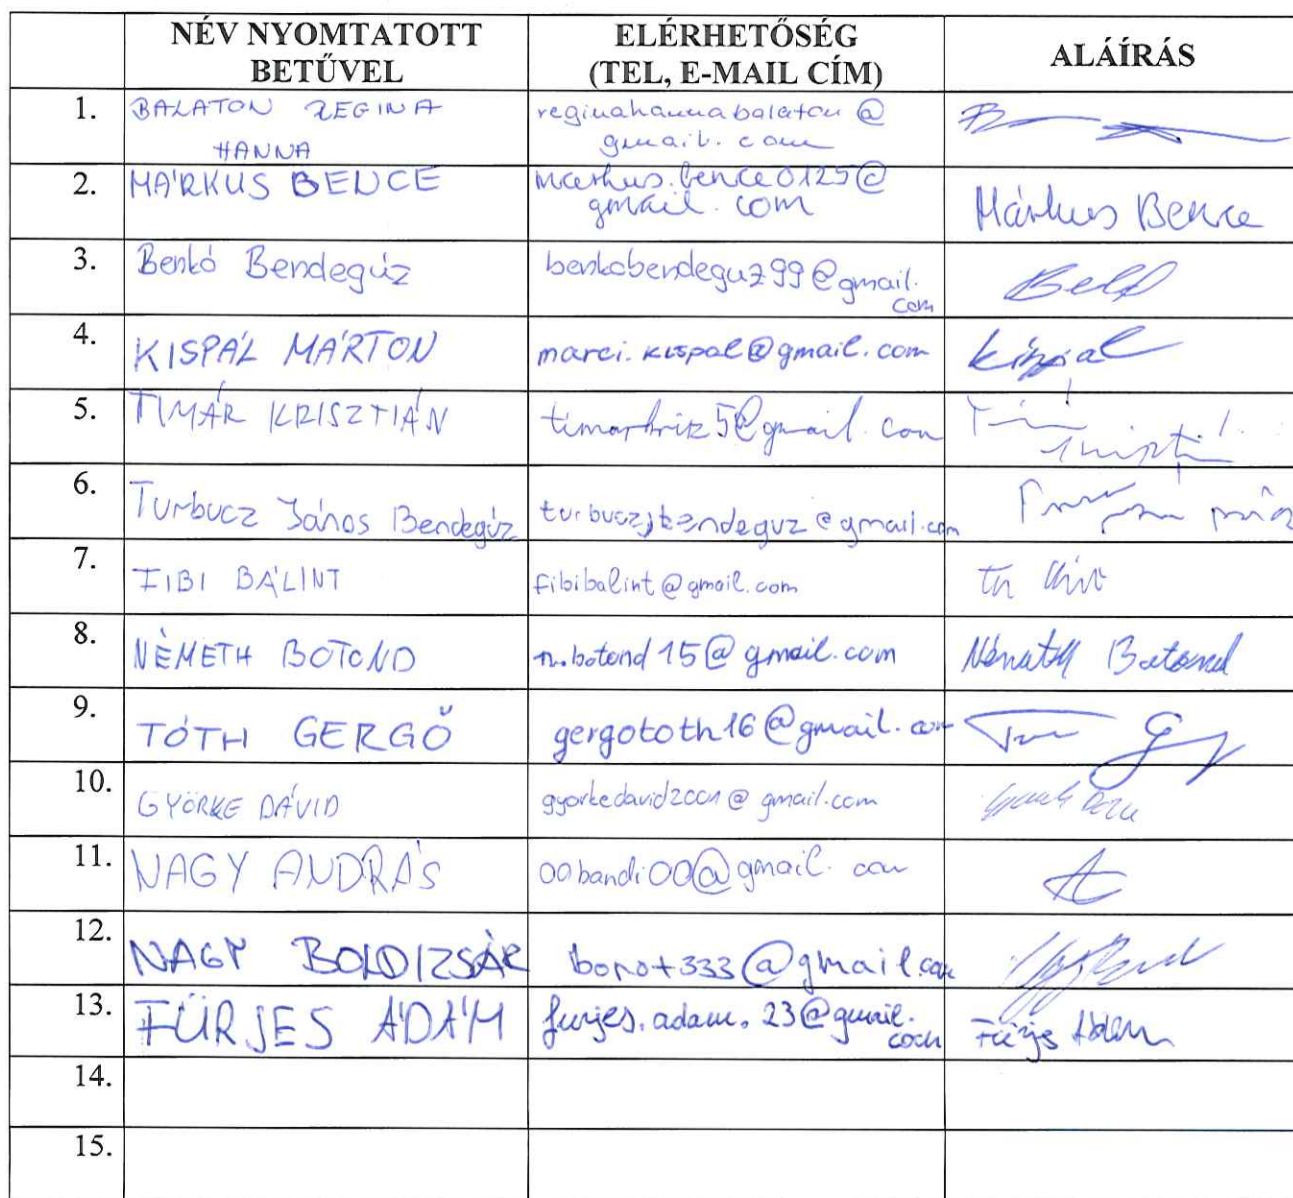 NÉV NYOMTATOTT
BETŰVEL
ELÉRHETŐSÉG
(TEL, E-MAIL CÍM)
ALÁÍRÁS
1.
BALATON REGINA
HANNA
reginahannabalaton@
gmail.com
2.
MÁRKUS BENCE
markus.bence0125@
gmail.com
Márkus Bence
3.
Benkó Bendegúz
benkobendeguz99@gmail.
com
4.
KISPÁL MÁRTON
marci.kispal@gmail.com
kispál
5.
TIMÁR KRISZTIÁN
timarkriz5@gmail.com
6.
Turbucz János Bendegúz
turbuczjbendeguz@gmail.com
7.
FIBI BÁLINT
fibibalint@gmail.com
8.
NÉMETH BOTOND
n.botond15@gmail.com
Németh Botond
9.
TÓTH GERGŐ
gergototh16@gmail.com
10.
GYÖRKE DÁVID
gyorkedavid2001@gmail.com
11.
NAGY ANDRÁS
00bandi00@gmail.com
12.
NAGY BOLDIZSÁR
borot333@gmail.com
13.
FÜRJES ÁDÁM
furjes.adam.23@gmail.
com
Fürjes Ádám
14.
15.